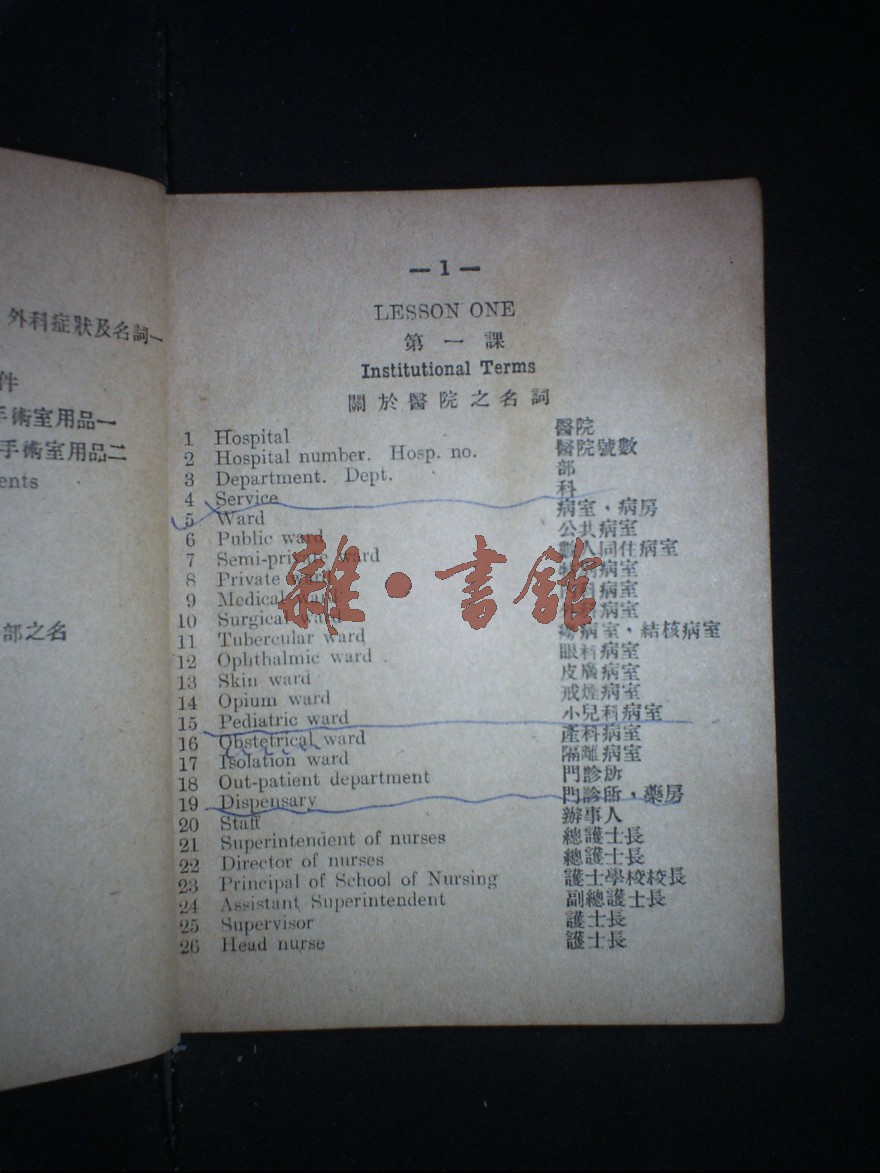 外科症狀及名詞一
件
手術室用品一
手術室用品二
ents
部之名
— 1 —
LESSON ONE
第一課
Institutional Terms
關於醫院之名詞
1 Hospital 醫院
2 Hospital number. Hosp. no. 醫院號數
3 Department. Dept. 部
4 Service 科
5 Ward 病室，病房
6 Public ward 公共病室
7 Semi-private ward 數人同住病室
8 Private ward 病室
9 Medical ward 病室
10 Surgical ward 病室
11 Tubercular ward 癆病室，結核病室
12 Ophthalmic ward 眼科病室
13 Skin ward 皮膚病室
14 Opium ward 戒煙病室
15 Pediatric ward 小兒科病室
16 Obstetrical ward 產科病室
17 Isolation ward 隔離病室
18 Out-patient department 門診所
19 Dispensary 門診所，藥房
20 Staff 辦事人
21 Superintendent of nurses 總護士長
22 Director of nurses 總護士長
23 Principal of School of Nursing 護士學校校長
24 Assistant Superintendent 副總護士長
25 Supervisor 護士長
26 Head nurse 護士長
雜·書館